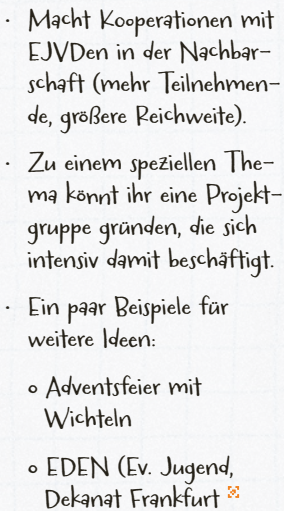 · Macht Kooperationen mit
EJVDen in der Nachbar-
schaft (mehr Teilnehmen-
de, größere Reichweite).
· Zu einem speziellen The-
ma könnt ihr eine Projekt-
gruppe gründen, die sich
intensiv damit beschäftigt.
· Ein paar Beispiele für
weitere Ideen:
o Adventsfeier mit
Wichteln
o EDEN (Ev. Jugend,
Dekanat Frankfurt